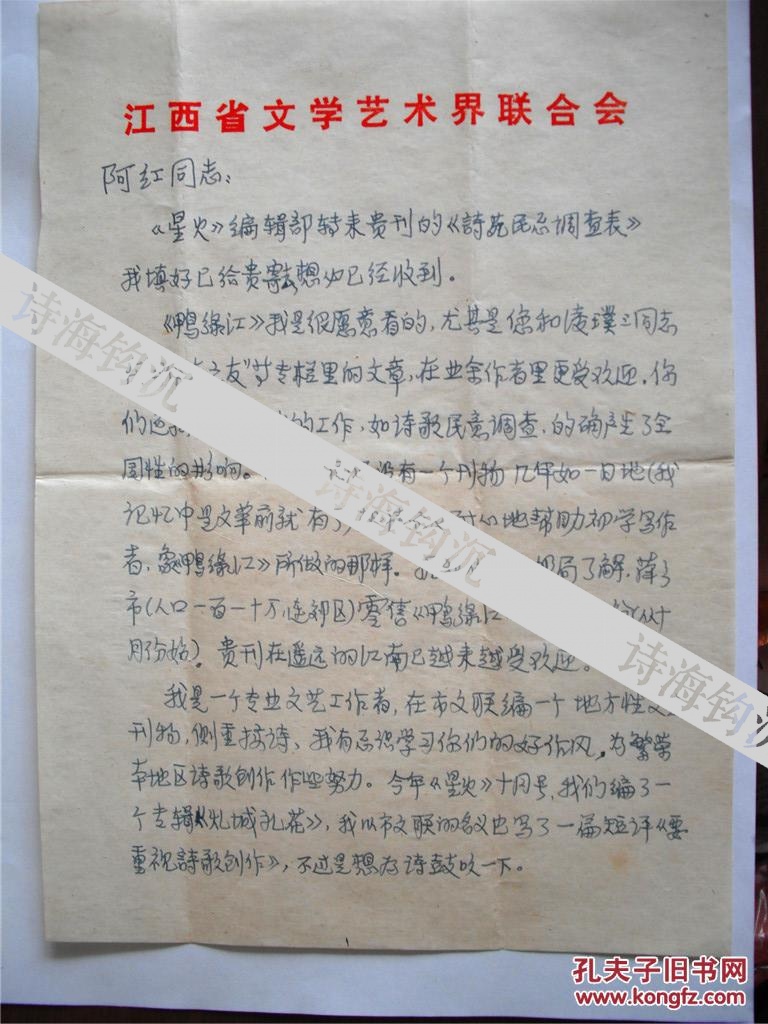 江西省文学艺术界联合会
阿红同志：
《星火》编辑部转来贵刊的《詩苑民意调查表》
我填好已给贵寄去想必已经收到。
《鴨緑江》我是很愿意看的，尤其是您和
同志
友”等专栏里的文章，在业余作者里更受欢迎。你
们还
的工作，如诗歌民意调查，的确产生了全
国性的影响。
没有一个刊物几年如一日地(我
记忆中是文革前就有了)
地帮助初学写作
者，象《鴨緑江》所做的那样。
局了解，
市(人口一百一十万，连郊区)零售《鴨緑江
月份始)。贵刊在遥远的江南已越来越受欢迎。
我是一个专业文艺工作者，在市文联编一个地方性文
刊物，侧重
诗、我有意识学习你们的好作风，为繁荣
本地区诗歌创作作些努力。今年《星火》十月号，我们编了一
个专辑
，我以市文联的名义也写了一篇短评《要
重视詩歌创作》，不过是想为诗鼓吹一下。
1
诗海钩沉
诗海钩沉
诗海钩沉
孔夫子旧书网
www.kongfz.com